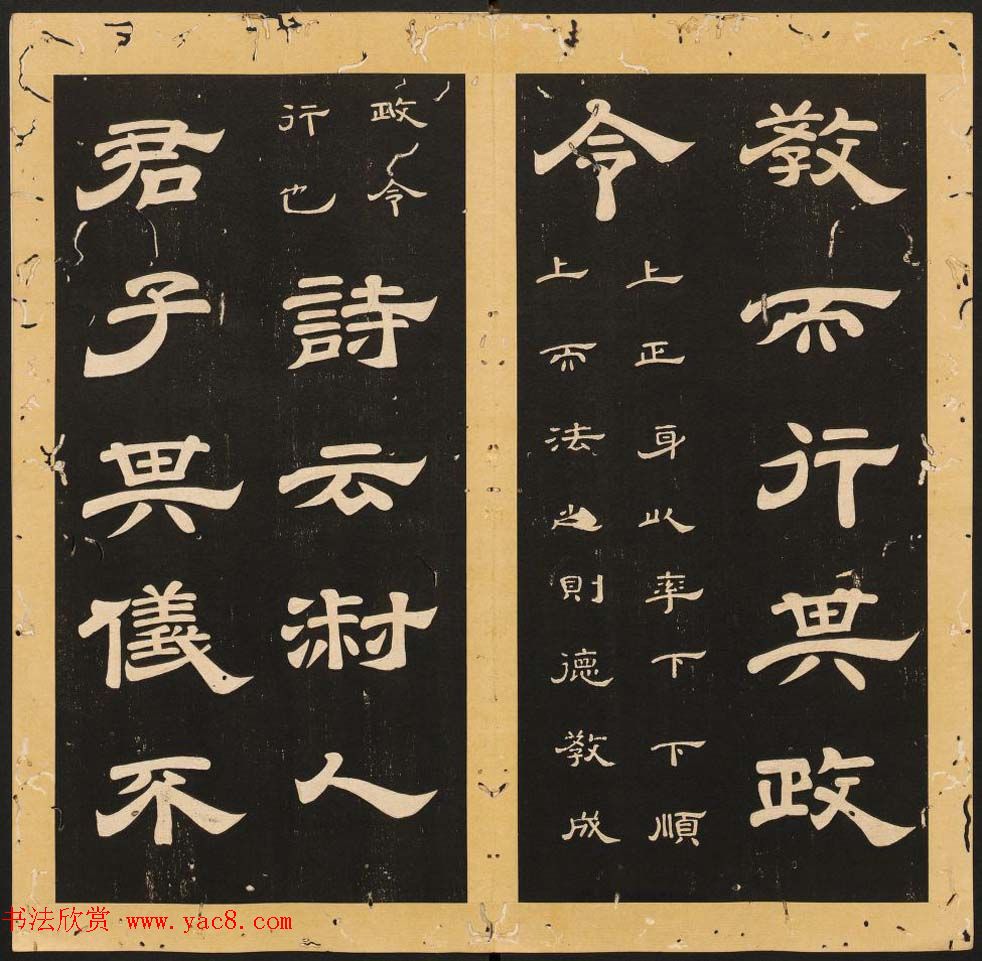 教而行其政
令
上正身以率下下順
上而法之則德教成
政令
行也
詩云淑人
君子其儀不
书法欣赏 www.yac8.com